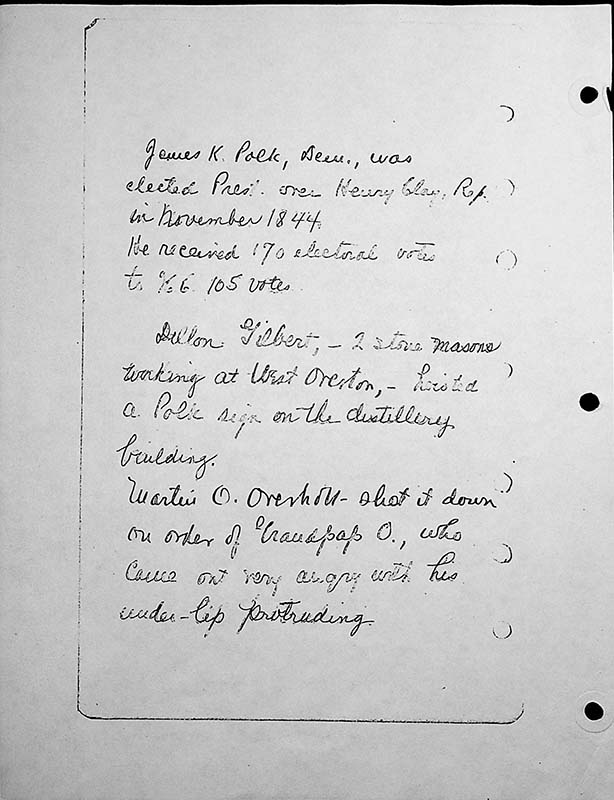 James K. Polk, Dem., was
elected Pres. over Henry Clay, Rep.
in November 1844.
He received 170 electoral votes
to 105 votes.
Dillon Gilbert, – 2 stone masons
working at West Overton, – hoisted
a Polk sign on the distillery
building.
Martin O. Overholt – shot it down
on order of Grandpap O., who
came out very angry with his
under-lip protruding.